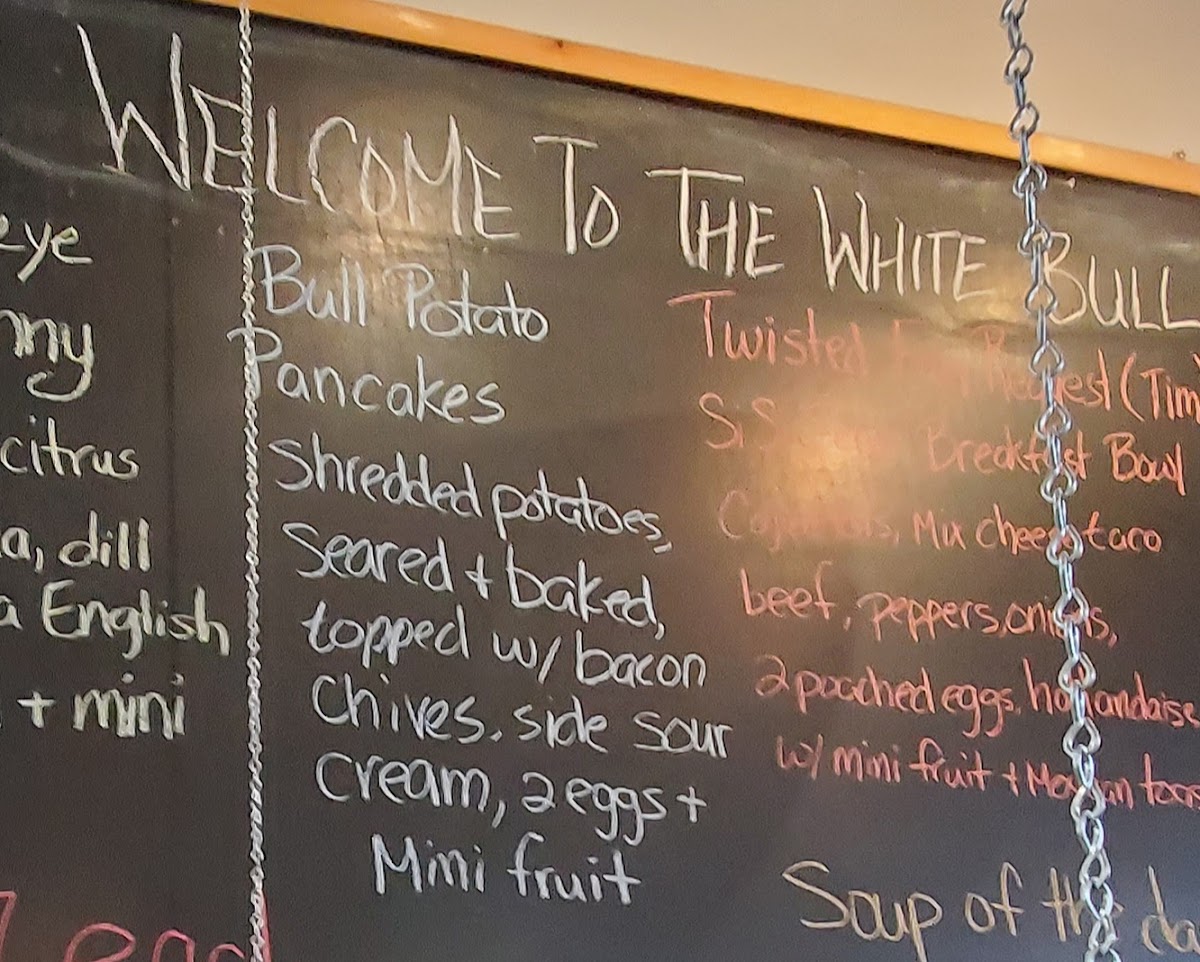 WELCOME TO THE WHITE BULL
eye
ny
citrus
a, dill
a English
+ mini
Bull Potato
Pancakes
Shredded potatoes,
Seared + baked,
topped w/ bacon
Chives. side sour
cream, 2 eggs +
Mini fruit
Twisted Request (Tim
Breakfast Bowl
Mix cheese taco
beef, peppers, onions,
2 poached eggs, hollandaise
w/ mini fruit +
Soup of the da